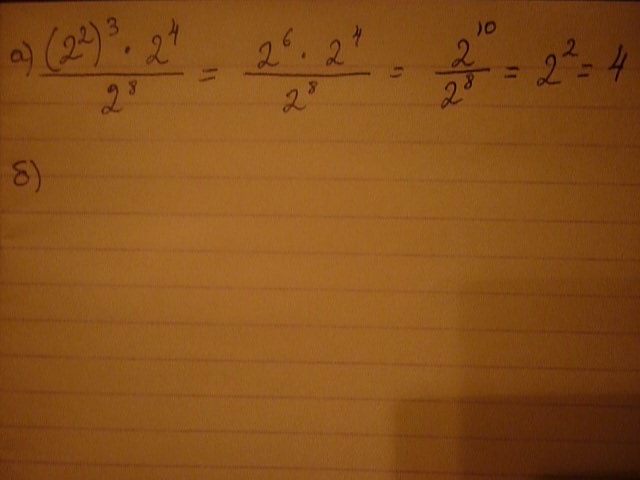 а) (2²)³ · 2⁴ / 2⁸ = 2⁶ · 2⁴ / 2⁸ = 2¹⁰ / 2⁸ = 2² = 4
б)